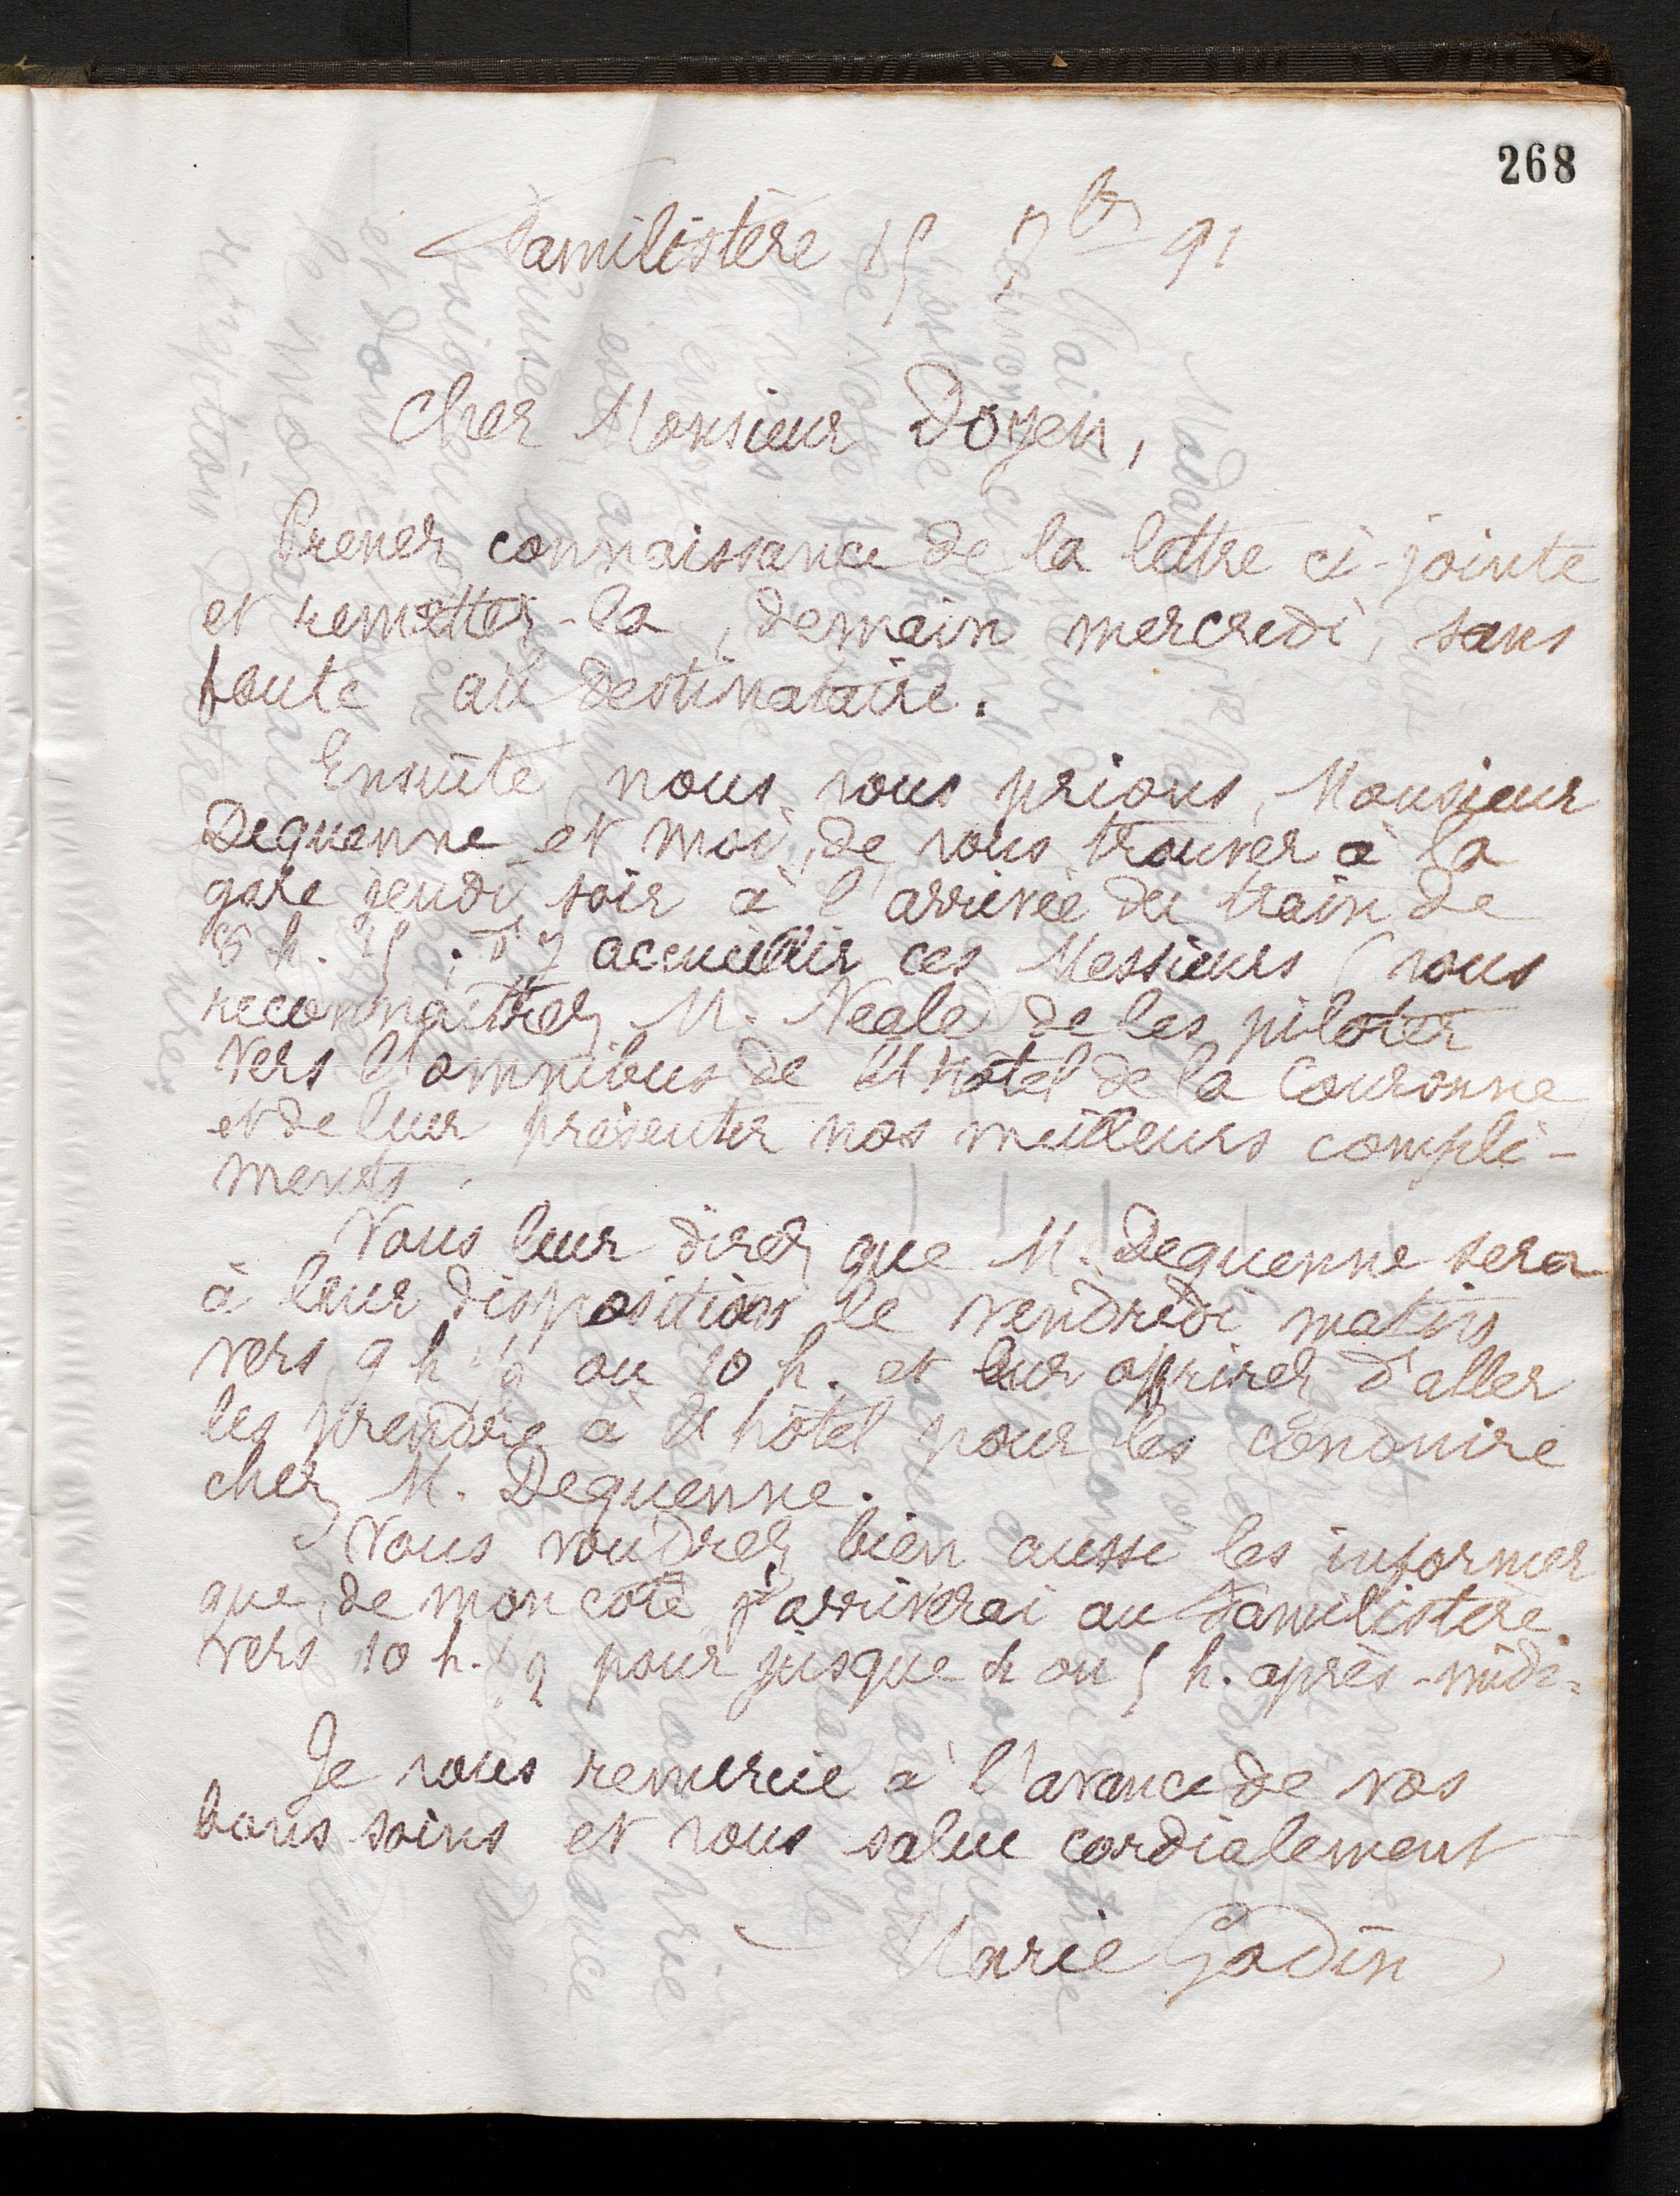 268
Familistère 15 7bre 91
Cher Monsieur Doyen,
Prenez connaissance de la lettre ci-jointe
et remettez-la, demain mercredi, sans
faute au destinataire.
Ensuite, nous vous prions, Monsieur
Dequenne et moi, de vous trouver à la
gare jeudi soir à l'arrivée du train de
6 h. 25 ; d'y accueillir ces Messieurs (vous
reconnaîtrez M. Neale de les piloter
vers l'omnibus de l'hôtel de la Couronne
et de leur présenter nos meilleurs compli-
ments.
Vous leur direz que M. Dequenne sera
à leur disposition le vendredi matin
vers 9 h 1/2 ou 10 h. et leur offrirez d'aller
les prendre à l'hôtel pour les conduire
chez M. Dequenne.
Vous voudrez bien aussi les informer
que, de mon côté j'arriverai au Familistère
vers 10 h. 1/2 pour jusque 4 ou 5 h. après-midi.
Je vous remercie à l'avance de vos
bons soins et vous salue cordialement
Marie Godin